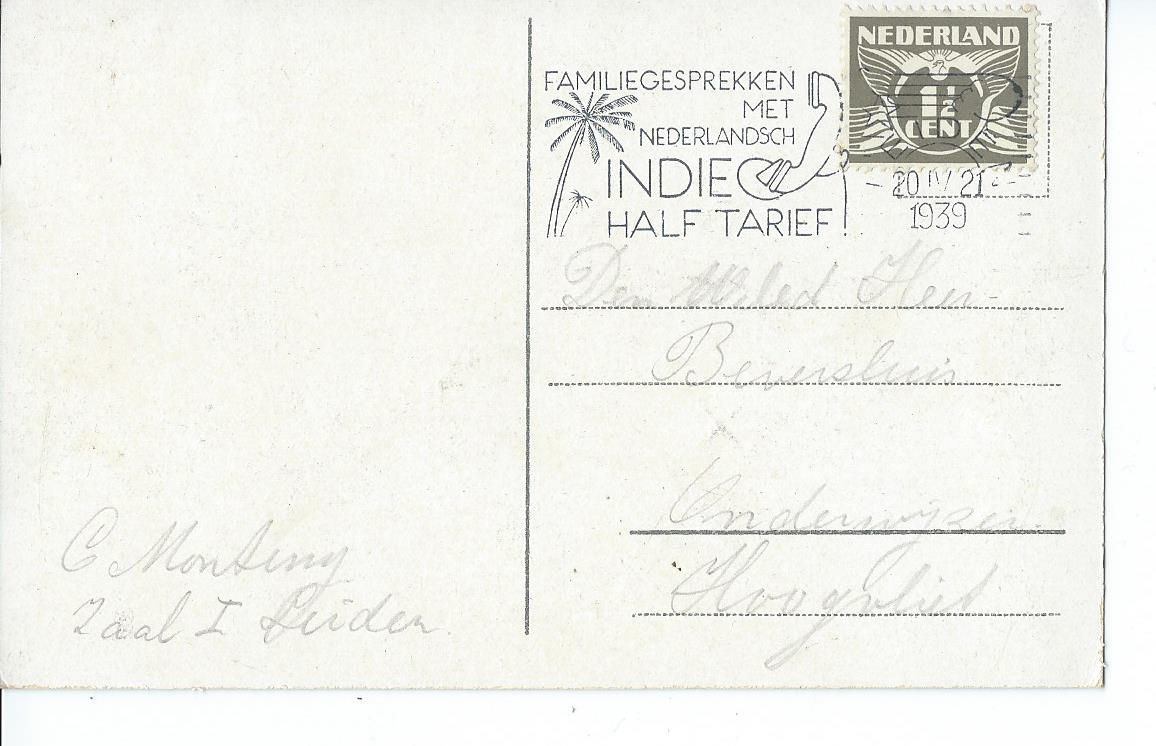 NEDERLAND
1½
CENT
FAMILIEGESPREKKEN
MET
NEDERLANDSCH
INDIE
HALF TARIEF!
20 IV 21
1939
Den Weled Heer
Beversluis
Onderwijzer
Hoogvliet
C Monteny
Zaal I Leiden